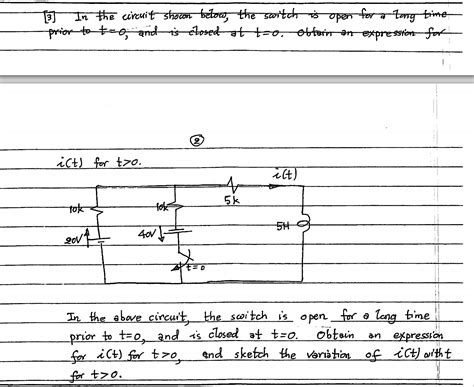 [3] In the circuit shown below, the switch is open for a long time
prior to t=0, and is closed at t=0. Obtain an expression for
②
i(t) for t>0.
i(t)
10k
10k
5k
20V
40V
5H
t=0
In the above circuit, the switch is open for a long time
prior to t=0, and is closed at t=0. Obtain an expression
for i(t) for t>0, and sketch the variation of i(t) with t
for t>0.